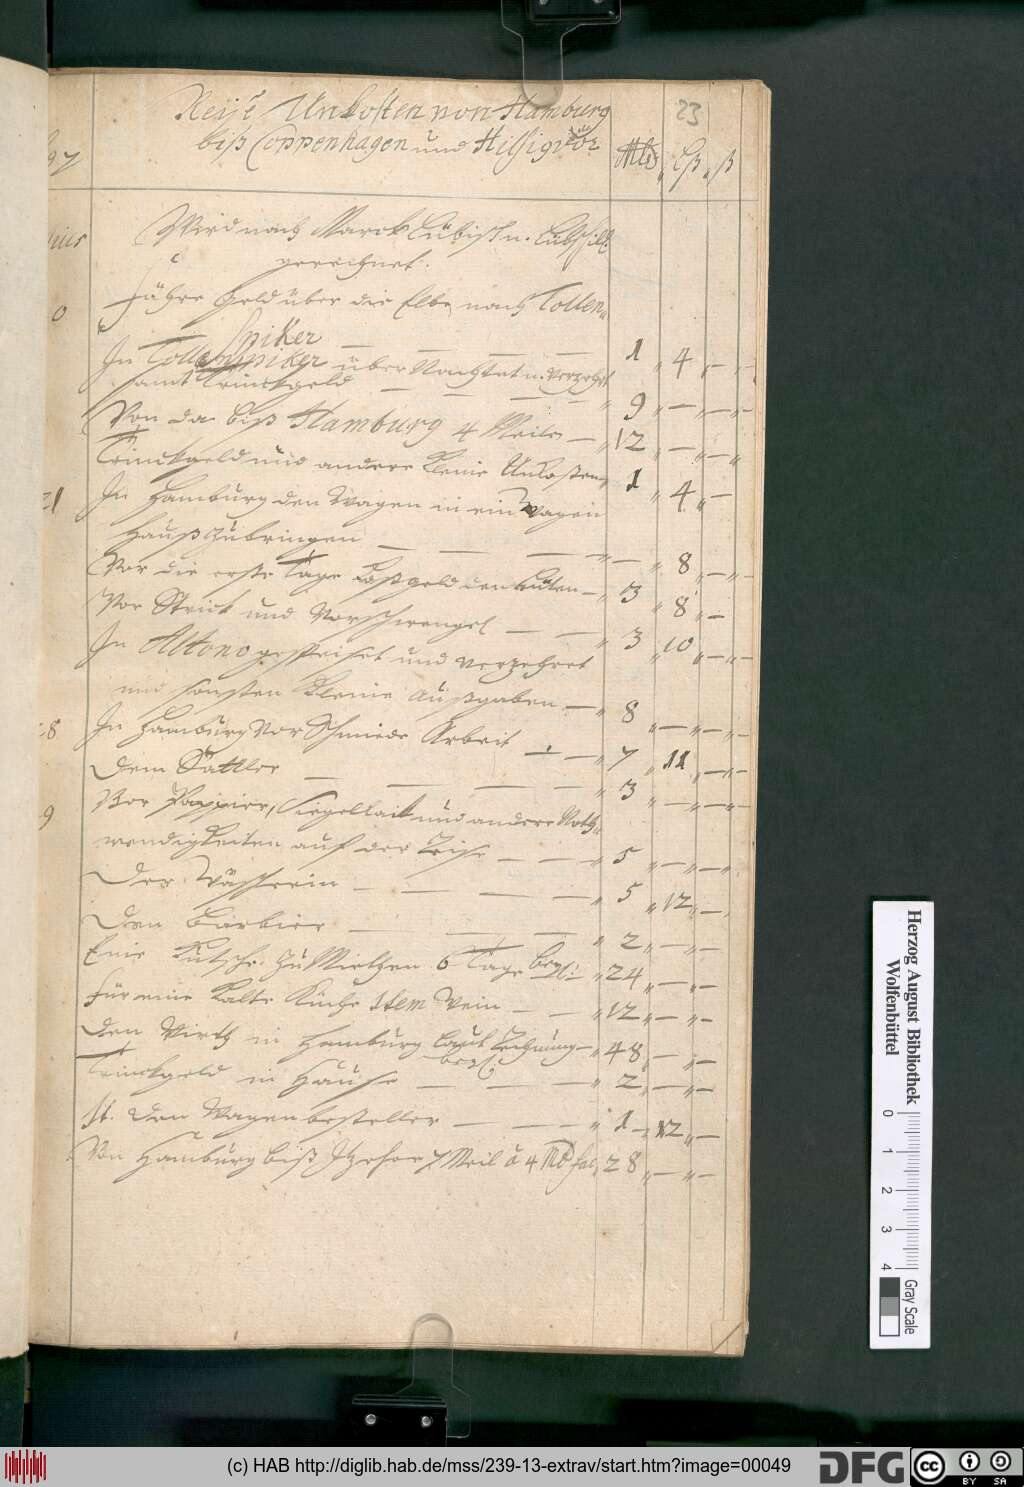 23
Reise Unkosten von Hamburg
biß Coppenhagen und
Mls ßl ß
97
Wird nach Marck Lübisch u. Lübsch
gerechnet.
Fähre Geld über die Elbe nach Tollen
Spiker — — — — 1 4 — —
0
In Tollenspiker über Nacht u. verzehrt
samt Trinckgeld — — — — 9 — — —
Von da biß Hamburg 4 Meile — 12 — —
Trinckgeld und andere kleine Unkosten 1 4 —
21
In Hamburg den Wagen in ein Wagen
Hauß zu bringen — — — — 8 — —
Vor die erste Tage Kostgeld den Leuten — 3 8 —
Vor Strick und Vorschwengel — — 3 10 — —
In Altona gespeiset und verzehret
und sonsten kleine Außgaben — 8 — — —
28
In Hamburg vor Schmiede Arbeit — — 7 11 — —
Dem Sattler — — — — 3 — — —
9
Vor Pappier, Siegellack und andere Noth
wendigkeiten auf der Reise — — — 5 — — —
Der Wäscherin — — — — 5 12 —
Den Barbier — — — 2 — — —
Eine Kutsche zu Miethen 6 Tage bez. 24 — — —
Für eine Kalte Küche Item Wein — — 12 — — —
Den Wirth in Hamburg laut Rechnung — 48 — —
bez.
Trinckgeld in Hause — — — — 2 — — —
It. Den Wagenbesteller — — — — 1 12 —
Von Hamburg biß Itzehoe 7 Meil à 4 28 — — —
Herzog August Bibliothek
Wolfenbüttel
0 1 2 3 4
Gray Scale
(c) HAB http://diglib.hab.de/mss/239-13-extrav/start.htm?image=00049
DFG
cc BY SA